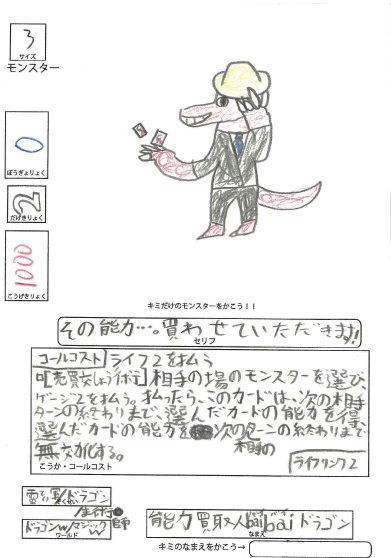 3
サイズ
モンスター
0
ぼうぎょりょく
2
だげきりょく
10000
こうげきりょく
キミだけのモンスターをかこう!!
その能力…。買わせていただきます!
セリフ
コールコスト ライフ2を払う
相手の場のモンスターを選び、
ゲージ2を払う。払ったら、このカードは、次の相手
ターンの終わりまで、選んだカードの能力を得、
選んだカードの能力を次の相手のターンの終わりまで
無交力化する。
ライフリンク2
こうか・コールコスト
ドラゴン
ぞくせい
ドラゴンW/マジックW
ワールド
能力買取人baibaiドラゴン
バイバイ
キミのなまえをかこう→